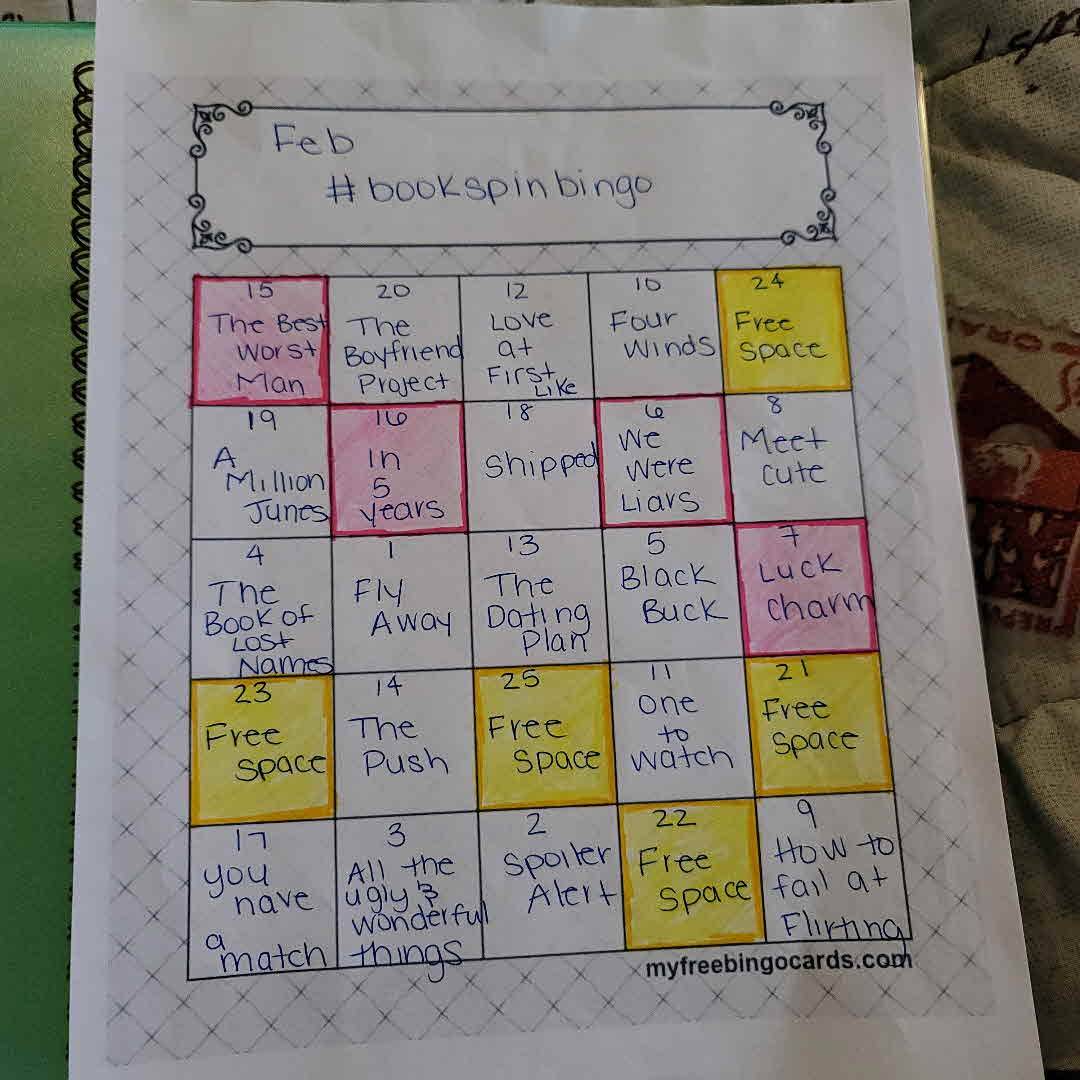 Feb
#bookspinbingo
15
The Best
Worst
Man
20
The
Boyfriend
Project
12
Love
at
First
Like
10
Four
Winds
24
Free
Space
19
A
Million
Junes
16
In
5
years
18
Shipped
6
We
Were
Liars
8
Meet
cute
4
The
Book of
Lost
Names
1
Fly
Away
13
The
Dating
Plan
5
Black
Buck
7
Luck
charm
23
Free
Space
14
The
Push
25
Free
Space
11
One
to
Watch
21
Free
Space
17
You
have
a
match
3
All the
ugly &
wonderful
things
2
Spoiler
Alert
22
Free
Space
9
How to
fail at
Flirting
myfreebingocards.com